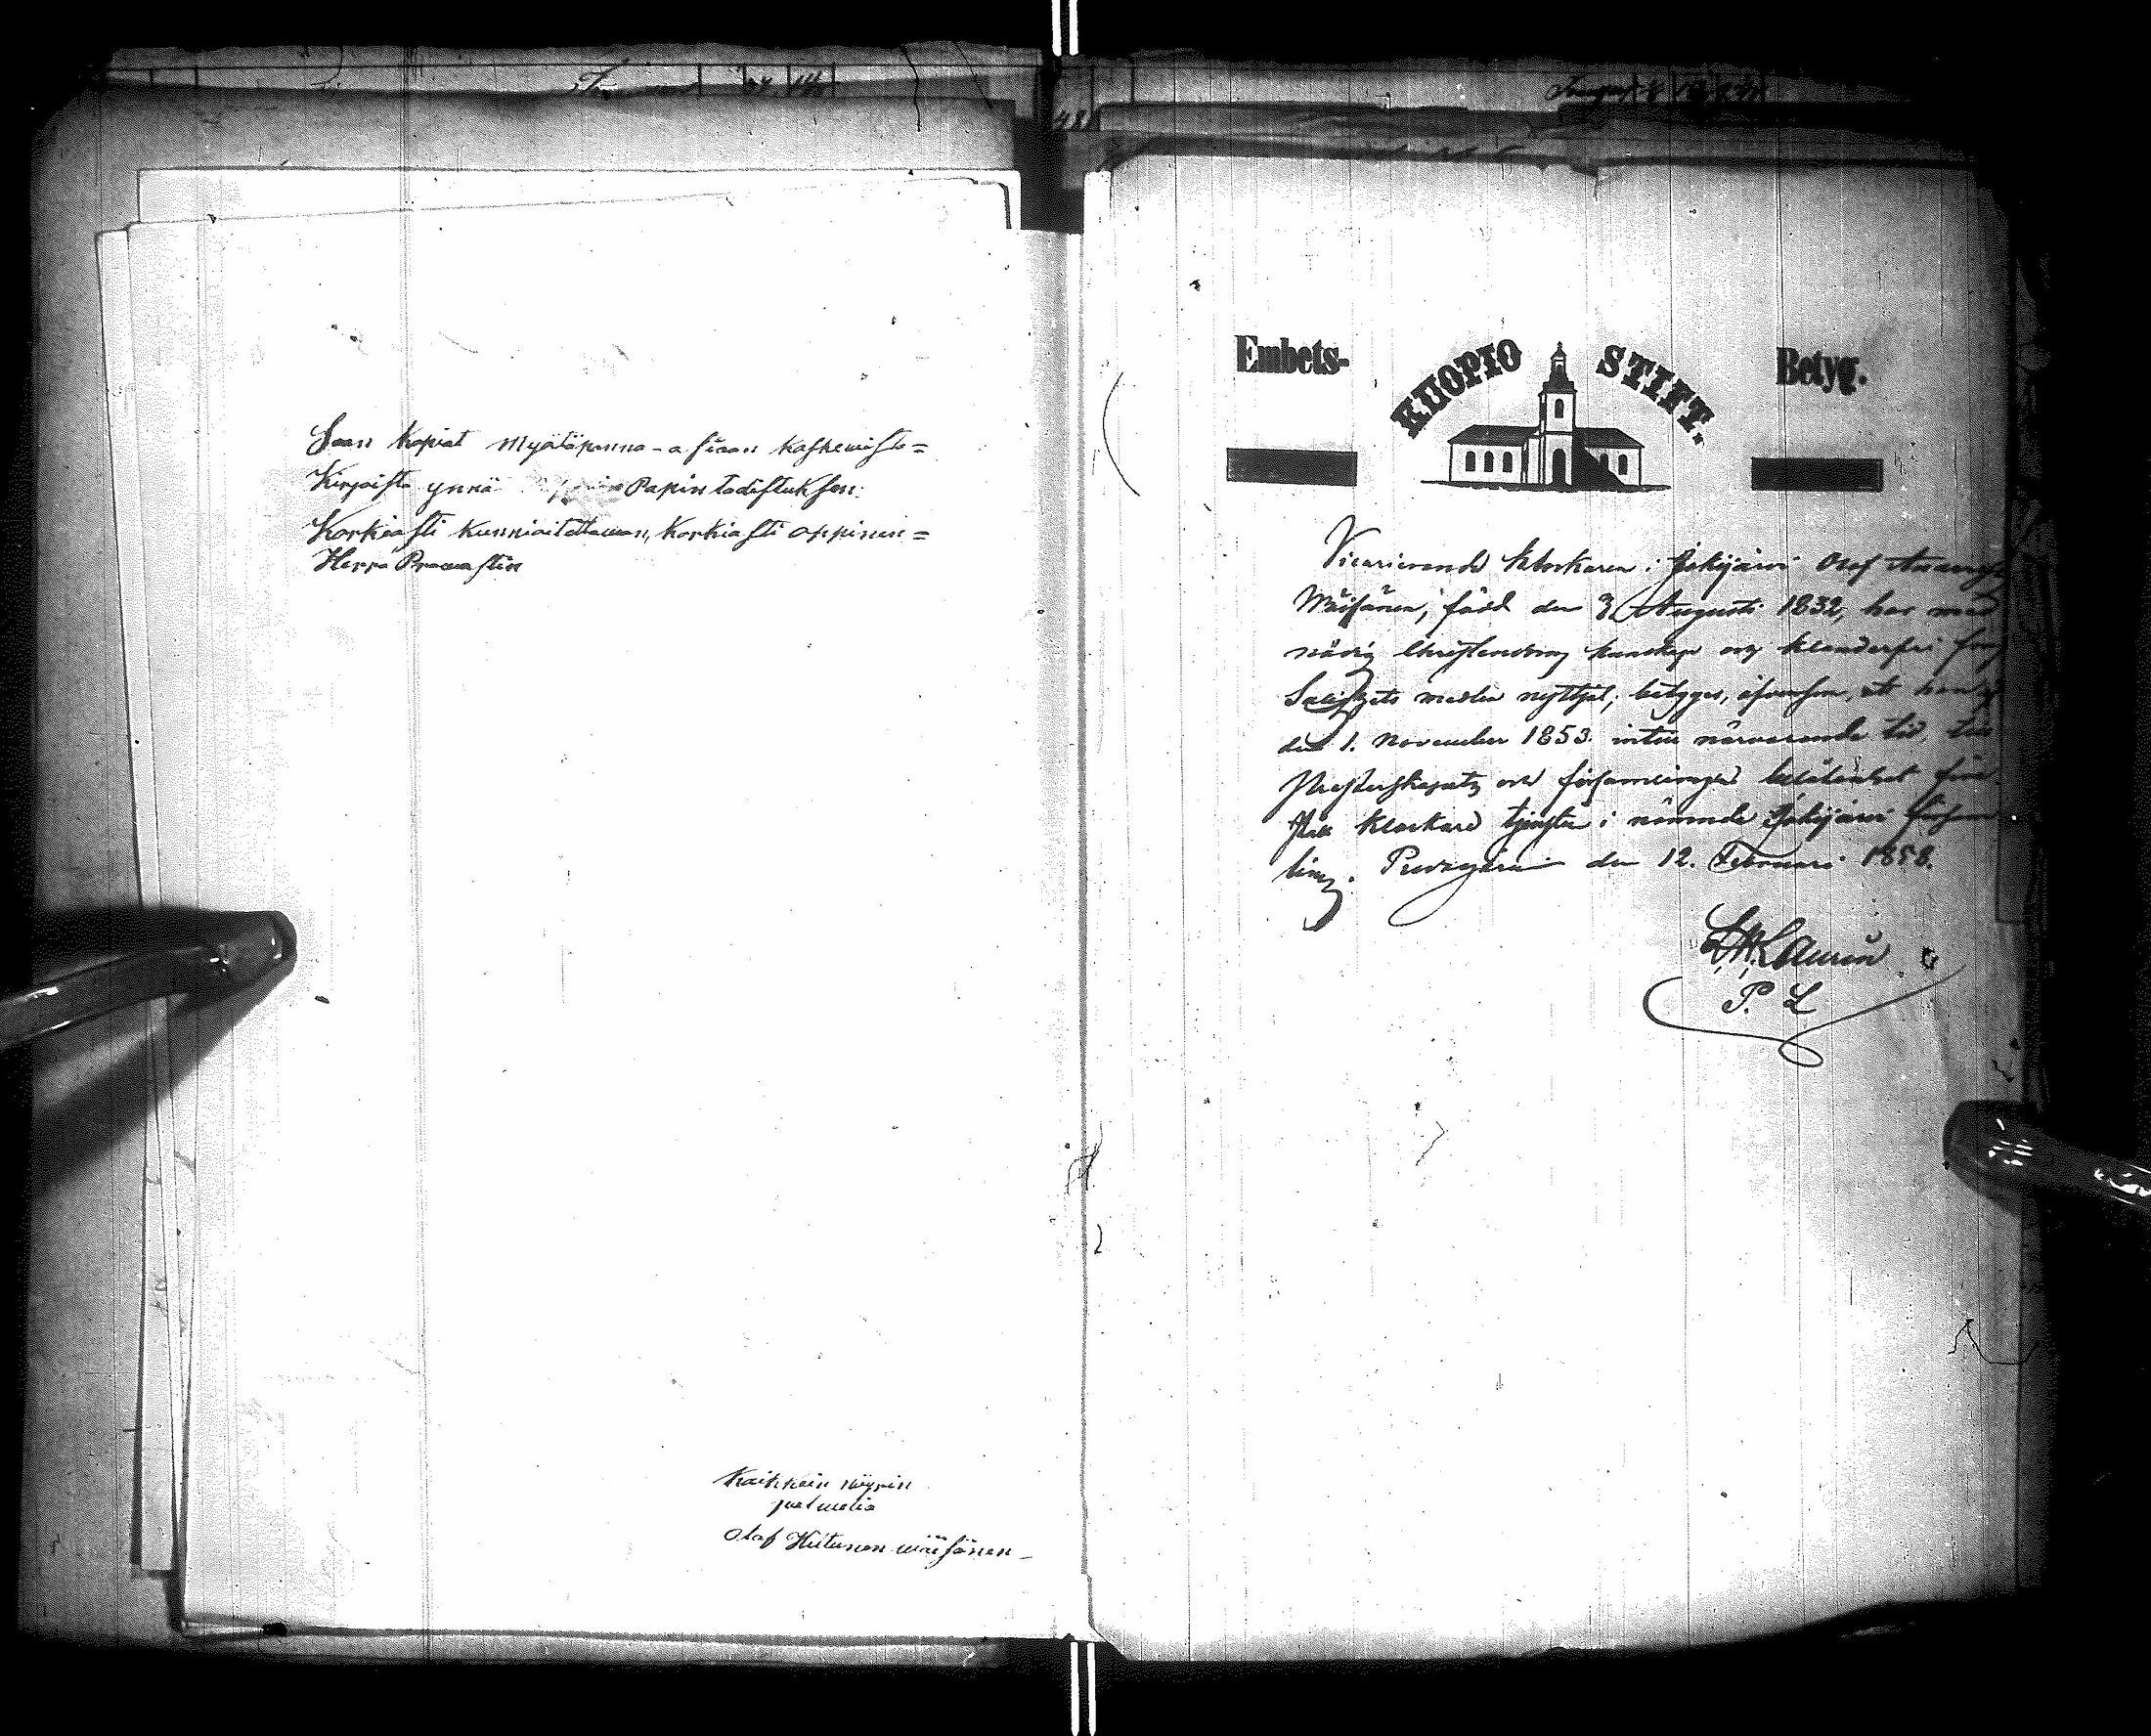 Saan Kopiat myötäpanna-a sisaan kaskemisto=
Kirjoista ynnä Papin todistuksen.
Korkiasti kunnioitettawan, korkiasti oppinen=
Herra Prowastin
Kaikkein nöyrin
palwelia
Olaf Hiitunen wäisänen
Embets-
KUOPIO STIFT.
Betyg.
Vicarierande klockaren i Jokijärvi Olof
Wäisänen, född den 3 Augusti 1832, har med
nödig Christendoms kunskap och klanderfri frejd
Salighets medlen nyttjat; betygas, äfvensom, att han
den 1. November 1853. intill närvarande tid, till
Presterskapets och församlingens belåtenhet före
klockare tjensten i nämnde Jokijärvi församl
ling. Pudasjärvi den 12. Februari 1858.
Laurin
P. L